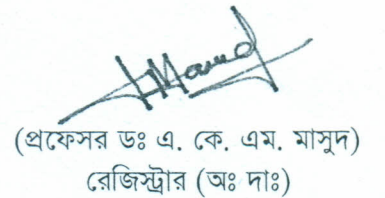 (প্রফেসর ডঃ এ. কে. এম. মাসুদ)
রেজিস্ট্রার (অঃ দাঃ)